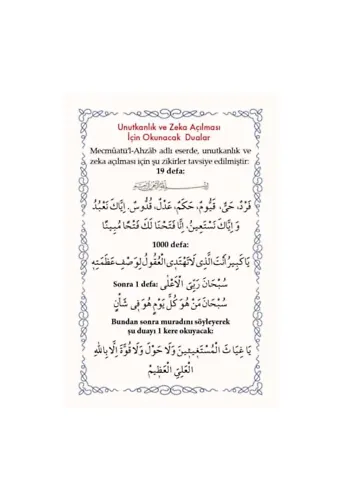 Unutkanlık ve Zeka Açılması
İçin Okunacak Dualar
Mecmûatü'l-Ahzâb adlı eserde, unutkanlık ve
zeka açılması için şu zikirler tavsiye edilmiştir:
19 defa:
فَرْدٌ، حَيٌّ، قَيُّومٌ، حَكَمٌ، عَدْلٌ، قُدُّوسٌ. اِيَّاكَ نَعْبُدُ
وَ اِيَّاكَ نَسْتَعِينُ، اِنَّا فَتَحْنَا لَكَ فَتْحًا مُبِينًا
1000 defa:
يَا كَبِيرُ اَنْتَ الَّذِى لَا تَهْتَدِى الْعُقُولُ لِوَصْفِ عَظَمَتِهِ
Sonra 1 defa: سُبْحَانَ رَبِّىَ الْاَعْلٰى
سُبْحَانَ مَنْ هُوَ كُلَّ يَوْمٍ هُوَ فِى شَأْنٍ
Bundan sonra muradını söyleyerek
şu duayı 1 kere okuyacak:
يَا غِيَاثَ الْمُسْتَغِيثِينَ وَلَا حَوْلَ وَلَا قُوَّةَ اِلَّا بِاللهِ
الْعَلِيِّ الْعَظِيمُ